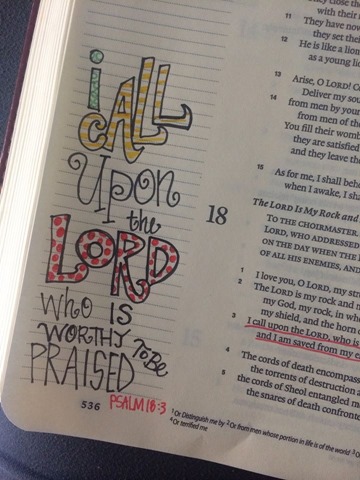 i
CALL
Upon
the
LORD
who IS
WORTHY To Be
PRAISED
536 PSALM 18:3
11 They have now
they set their
12 He is like a lion
as a young
13 Arise, O LORD!
Deliver my
14 from men by your
from men of the
You fill their
they are satisfied
and they leave
15 As for me, I shall
when I awake, I
18
The LORD Is My Rock and
TO THE CHOIRMASTER.
LORD, WHO ADDRESSED
ON THE DAY WHEN THE
OF ALL HIS ENEMIES,
1 I love you, O LORD, my
2 The LORD is my rock and
my God, my rock, in
my shield, and the horn
3 I call upon the LORD, who is
and I am saved from my
4 The cords of death
the torrents of destruction
5 the cords of Sheol entangled
the snares of death
1 Or Distinguish me by 2 Or from men whose portion in life is of the world
4 Or terrified me